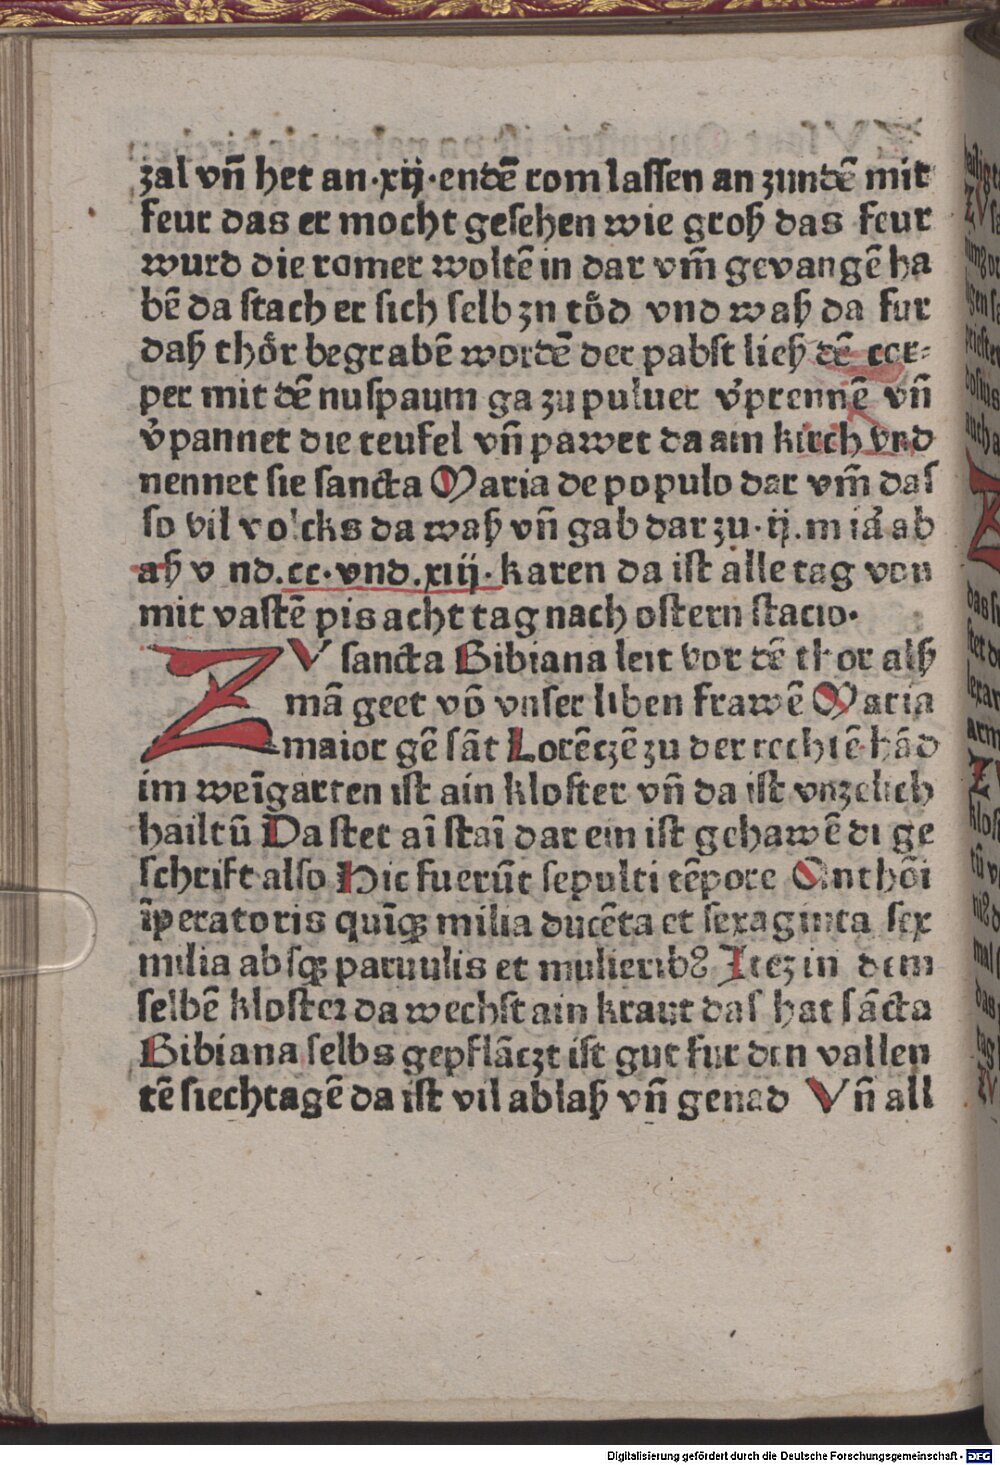 zal vñ het an·xij·endẽ rom lassen an zundẽ mit
feur das er mocht gesehen wie groß das feur
wurd die romer woltẽ in dar vm̃ gevangẽ ha
bẽ da stach er sich selb zu tôd vnd waß da fur
daß thôr begrabẽ wordẽ der pabst ließ dẽ cor⸗
per mit dẽ nuspaum ga zu puluer v̓prennẽ vñ
v̓pannet die teufel vñ pawet da ain kirch vnd
nennet sie sancta Maria de populo dar vm̃ das
so vil volcks da waß vñ gab dar zu·ij.m iar̓ ab
aß vnd.cc·vnd.xiij·karen da ist alle tag von
mit vastẽ pis acht tag nach ostern stacio·
ZV sancta Bibiana leit vor dẽ thor alß
mã geet võ vnser liben frawẽ Maria
maior gẽ sãt Lorẽczẽ zu der rechtẽ hãd
im weĩgarten ist ain kloster vñ da ist vnzelich
hailtũ Da stet aĩ staĩ dar ein ist gehawẽ di ge
schrift also Hic fuerũt sepulti tẽpore Anthõi
ĩperatoris quĩqꝫ milia ducẽta et sexaginta sex
milia absqꝫ paruulis et mulierib⁊ Itez in dem
selbẽ kloster da wechst ain kraut das hat sãcta
Bibiana selbs gepflãczt ist gut fur den vallen
tẽ siechtagẽ da ist vil ablaß vñ genad Vñ all
Digitalisierung gefördert durch die Deutsche Forschungsgemeinschaft - DFG